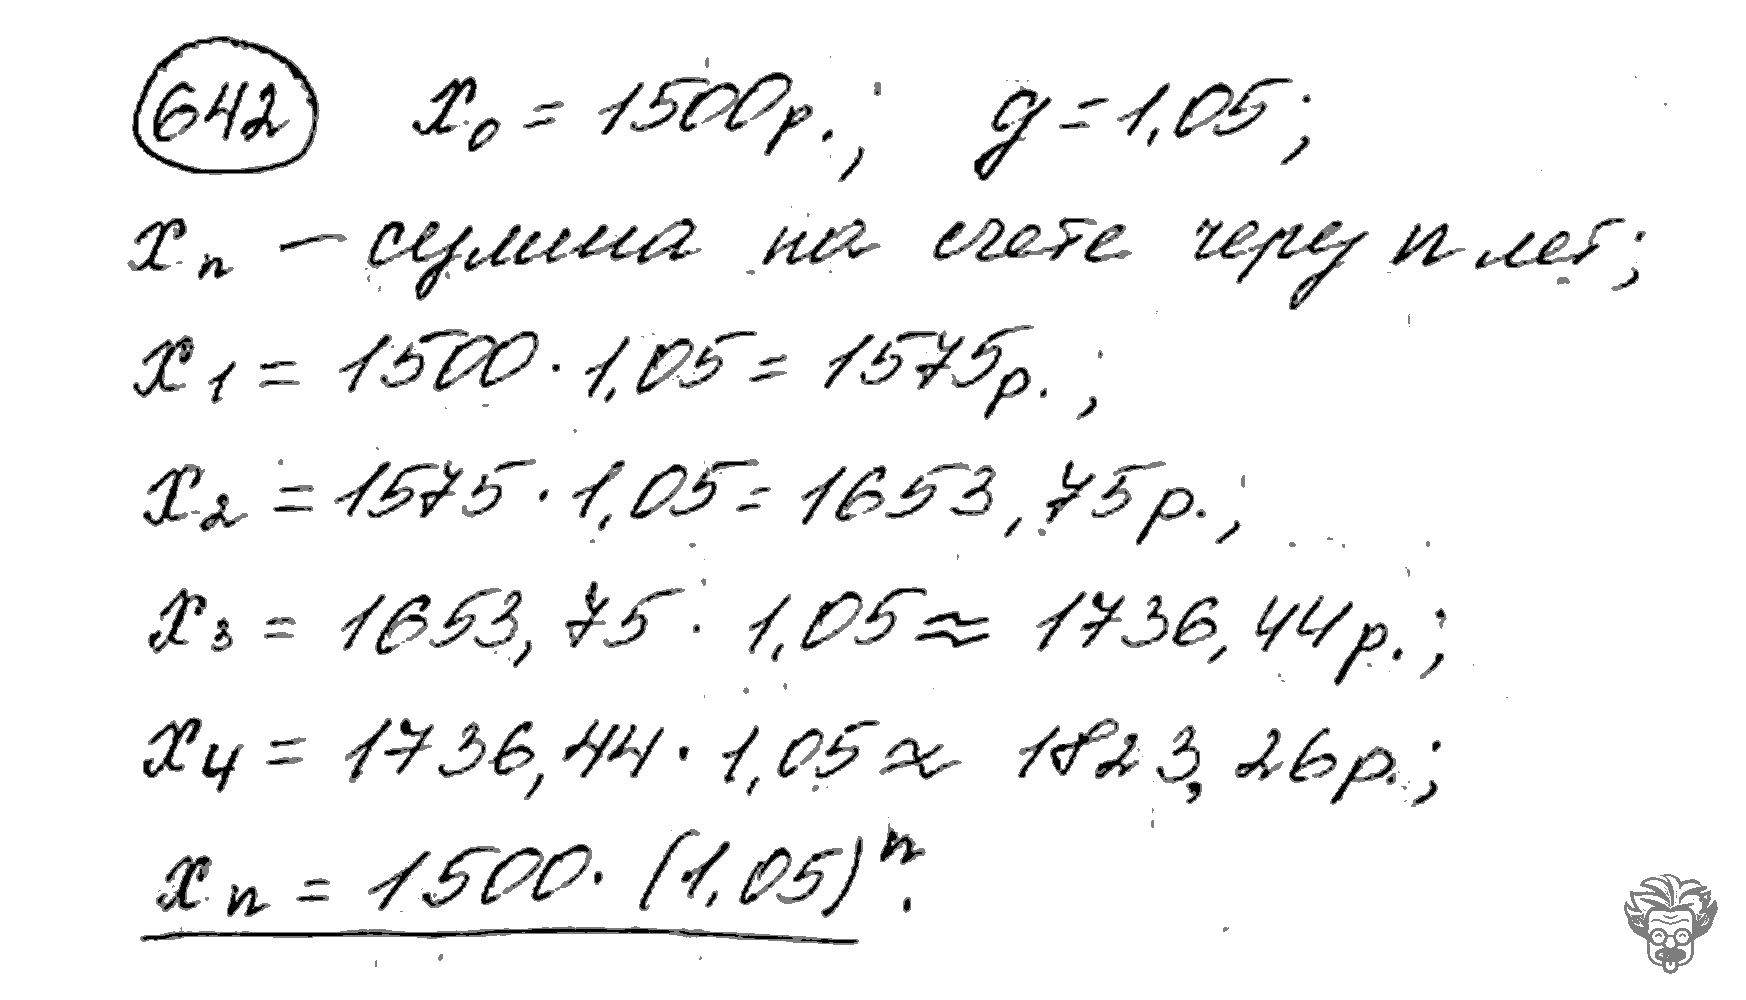 642 x₀ = 1500р.; g = 1,05;
xₙ — сумма на счете через n лет;
x₁ = 1500 · 1,05 = 1575р.;
x₂ = 1575 · 1,05 = 1653,75р.;
x₃ = 1653,75 · 1,05 ≈ 1736,44р.;
x₄ = 1736,44 · 1,05 ≈ 1823,26р.;
xₙ = 1500 · (1,05)ⁿ.